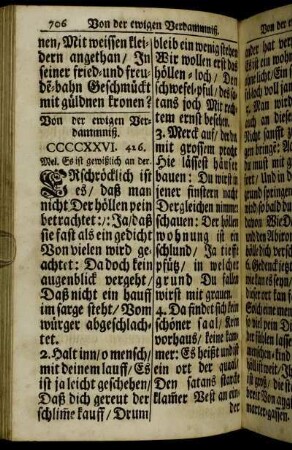 706 Von der ewigen Verdammniß.
nen, Mit weissen klei-
dern angethan / In
seiner fried- und freu-
de-bahn Geschmückt
mit güldnen kronen?
Von der ewigen Ver-
dammniß.
CCCCXXVI. 426.
Mel. Es ist gewißlich an der.
ERschröcklich ist
es / daß man
nicht Der höllen pein
betrachtet :/: Ja / daß
sie fast als ein gedicht
Von vielen wird ge-
achtet: Da doch kein
augenblick vergeht /
Daß nicht ein hauff
im sarge steht / Vom
würger abgeschlach-
tet.
2. Halt inn / o mensch /
mit deinem lauff / Es
ist ja leicht geschehen /
Daß dich gereut der
schlim̃e kauff / Drum
bleib ein wenig stehen
Wir wollen erst das
höllen-loch / Den
schwefel-pful / des sa-
tans joch Mit rech-
tem ernst besehen.
3. Merck auf / der du
mit grossem pracht
Hie lässest häuser
bauen: Du wirst in
jener finstern nacht
Dergleichen nimmer
schauen: Der höllen
wohnung ist ein
schlund / Ja tieffe
pfütz / in welcher
grund Du fallen
wirst mit grauen.
4. Da findet sich kein
schöner saal / Kein
vorhaus / keine kam-
mer: Es heißt und ist
ein ort der quaal /
Den satans starcke
klam̃er Vest an ein-
der